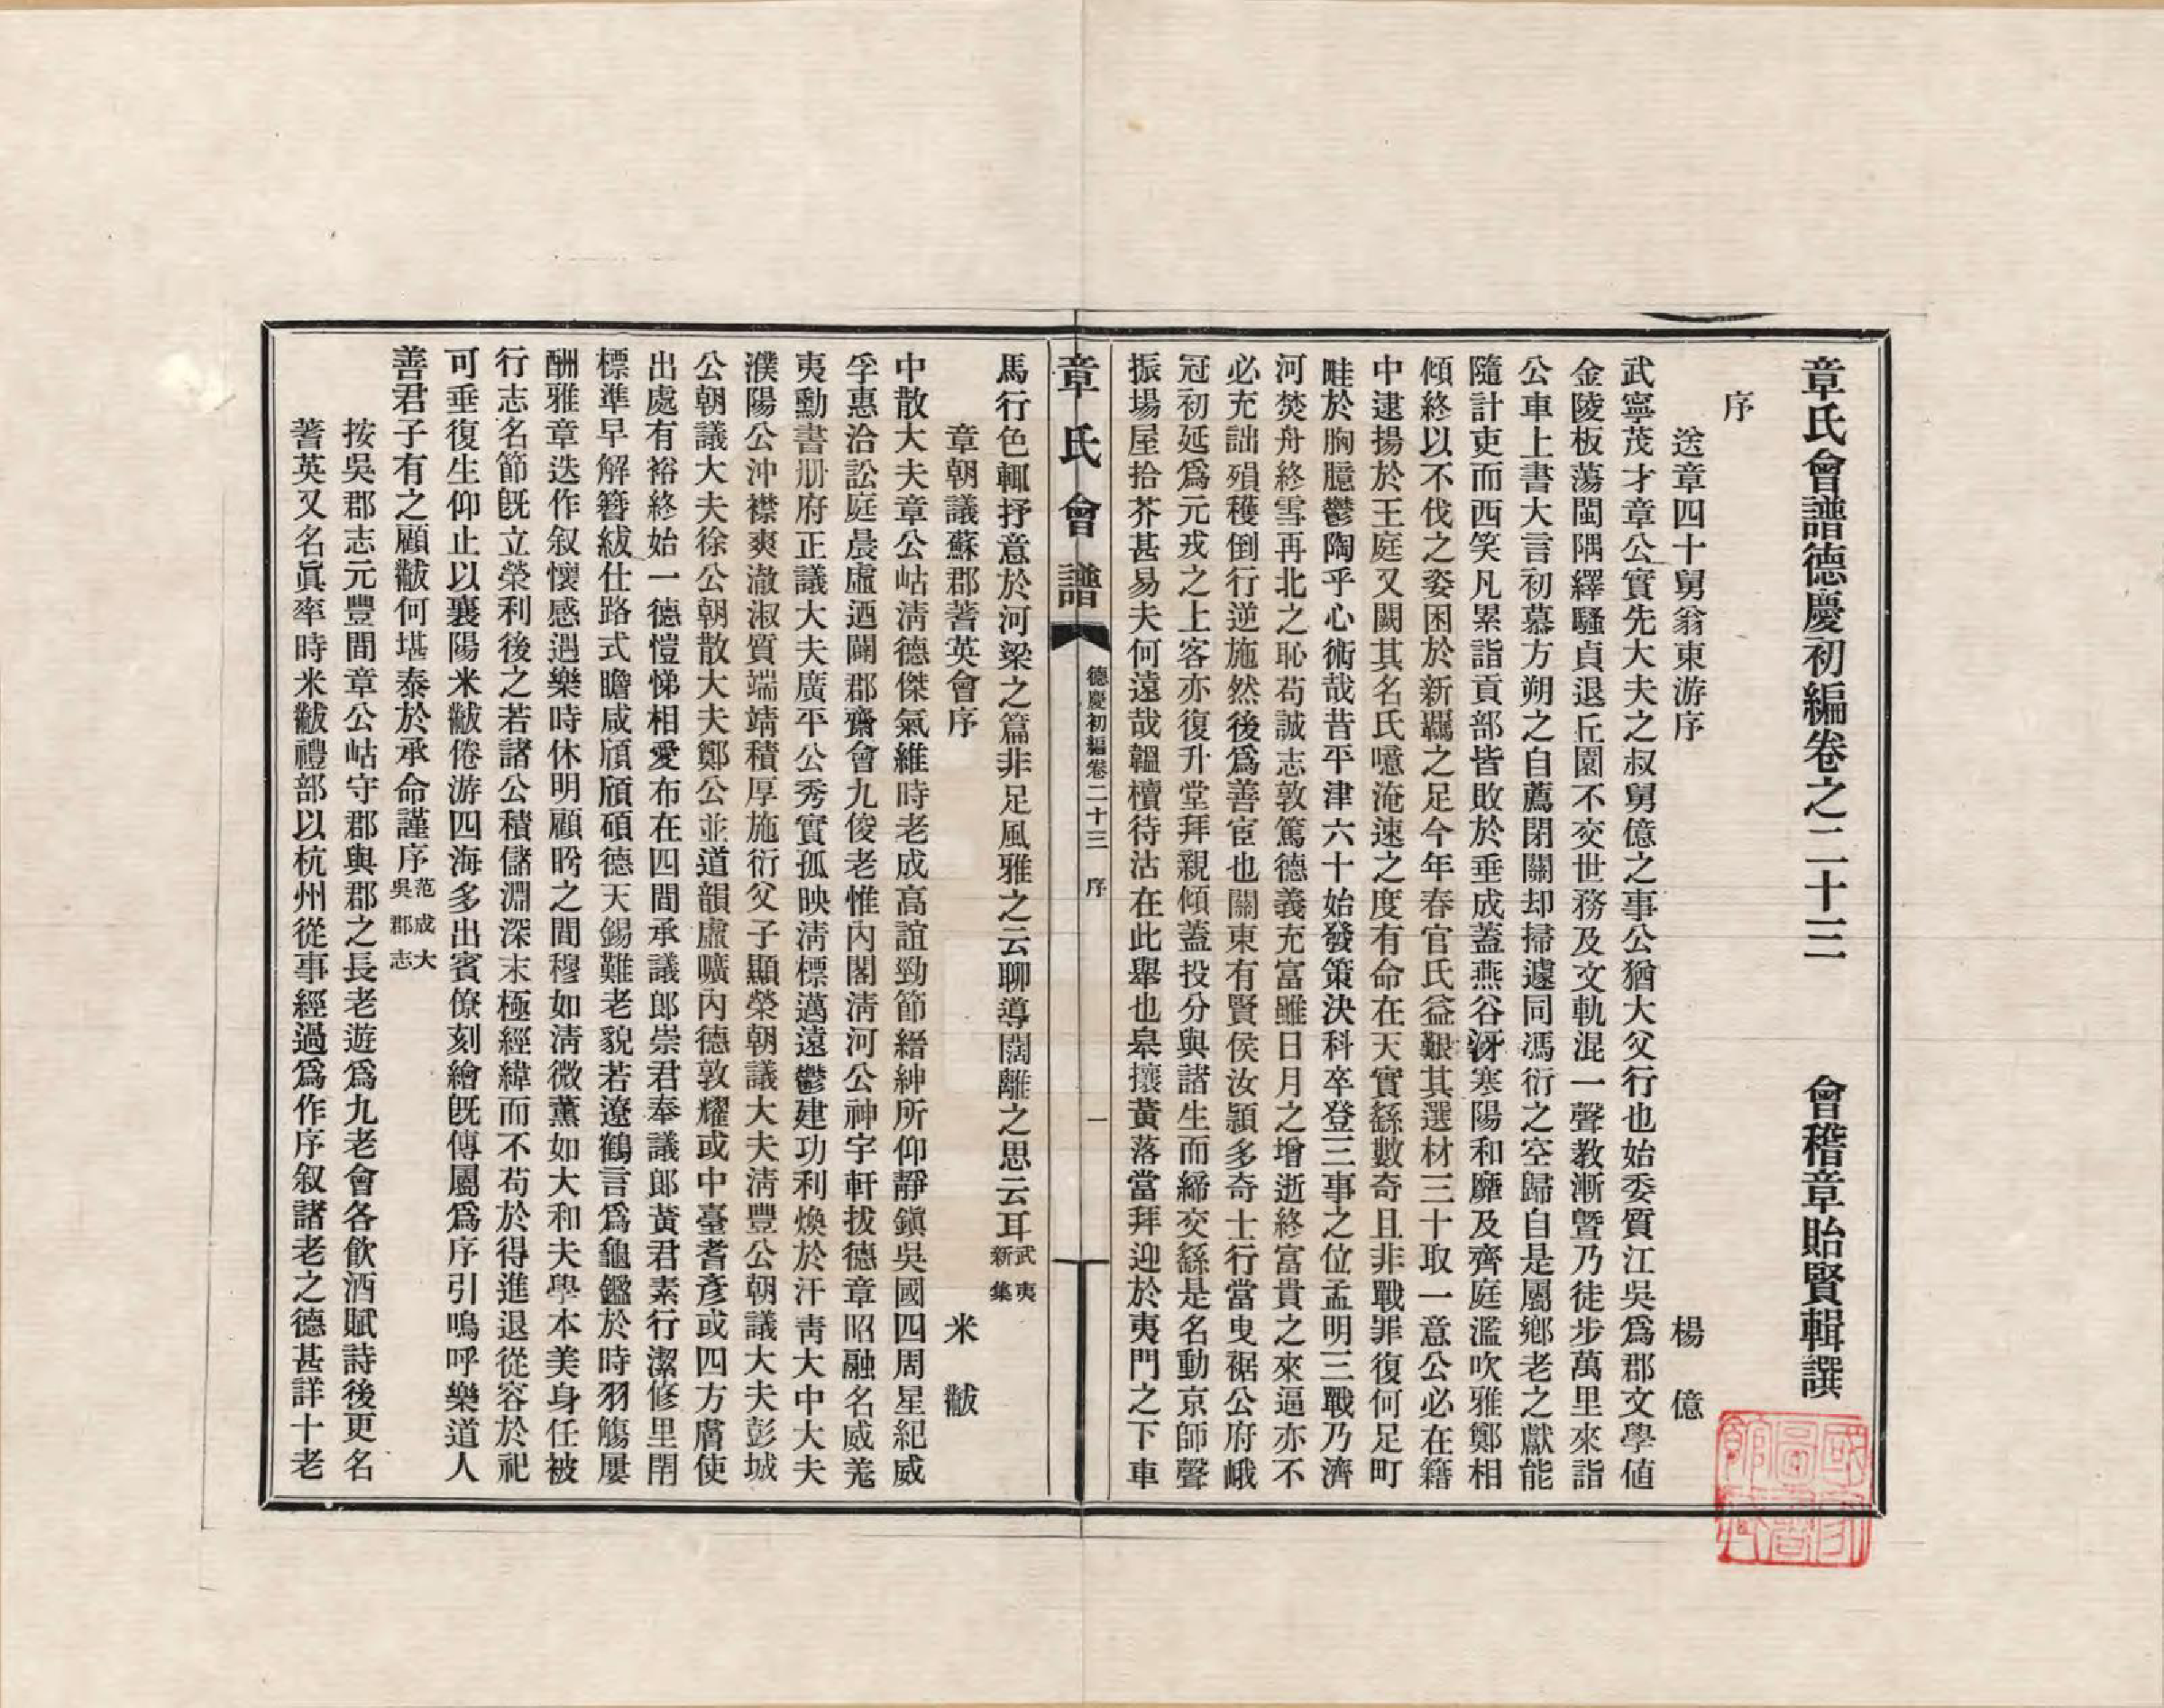 章氏會譜德慶初編卷之二十三　會稽章貽賢輯譔
序
送章四十舅翁東游序　楊億
武寧茂才章公實先大夫之叔舅億之事公猶大父行也始委質江吳爲郡文學値
金陵板蕩閩隅繹騷貞退丘園不交世務及文軌混一聲教漸曁乃徒步萬里來詣
公車上書大言初慕方朔之自薦閉關却掃遽同馮衍之空歸自是屬鄉老之獻能
隨計吏而西笑凡累詣貢部皆敗於垂成蓋燕谷沍寒陽和靡及齊庭濫吹雅鄭相
傾終以不伐之姿困於新羈之足今年春官氏益艱其選材三十取一意公必在籍
中逮揚於王庭又闕其名氏噫淹速之度有命在天實繇數奇且非戰罪復何足町
畦於胸臆鬱陶乎心術哉昔平津六十始發策決科卒登三事之位孟明三戰乃濟
河焚舟終雪再北之恥苟誠志敦篤德義充富雖日月之增逝終富貴之來逼亦不
必充詘殞穫倒行逆施然後爲善宦也關東有賢侯汝潁多奇士行當曳裾公府峨
冠初延爲元戎之上客亦復升堂拜親傾蓋投分與諸生而締交繇是名動京師聲
振場屋拾芥甚易夫何遠哉韞櫝待沽在此舉也皐攘黃落當拜迎於夷門之下車
章氏會譜　德慶初編卷二十三　序　一
馬行色輒抒意於河梁之篇非足風雅之云聊導闊離之思云耳武夷新集
章朝議蘇郡耆英會序　米黻
中散大夫章公岵淸德傑氣維時老成高誼勁節縉紳所仰靜鎭吳國四周星紀威
孚惠洽訟庭晨虛迺闢郡齋會九俊老惟內閣淸河公神宇軒拔德章昭融名威羗
夷勳書册府正議大夫廣平公秀實孤映淸標邁遠鬱建功利煥於汗靑大中大夫
濮陽公沖襟爽澈淑質端靖積厚施衍父子顯榮朝議大夫淸豐公朝議大夫彭城
公朝議大夫徐公朝散大夫鄭公並道韻虛曠內德敦耀或中臺耆彥或四方膚使
出處有裕終始一德愷悌相愛布在四間承議郎崇君奉議郎黃君素行潔修里閈
標準早解簪紱仕路式瞻咸頎頎碩德天錫難老貌若遼鶴言爲龜鑑於時羽觴屢
酬雅章迭作叙懷感遇樂時休明顧眄之間穆如淸微薰如大和夫學本美身任被
行志名節旣立榮利後之若諸公積儲淵深末極經緯而不苟於得進退從容於祀
可垂復生仰止以襄陽米黻倦游四海多出賓僚刻繪旣傳屬爲序引嗚呼樂道人
善君子有之顧黻何堪泰於承命謹序范成大吳郡志
按吳郡志元豐間章公岵守郡與郡之長老遊爲九老會各飮酒賦詩後更名
耆英又名眞率時米黻禮部以杭州從事經過爲作序叙諸老之德甚詳十老